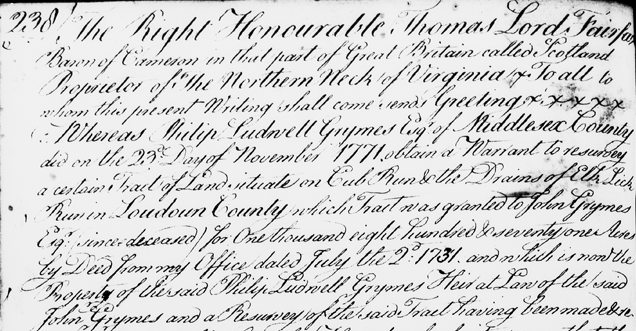 238 The Right Honourable Thomas Lord Fairfax
Baron of Cameron in that part of Great Britain called Scotland
Proprietor of the Northern Neck of Virginia & To all to
whom this present Writing shall come sends Greeting x x x x x
Whereas Philip Ludwell Grymes Esqr of Middlesex County
did on the 23d Day of November 1771 obtain a Warrant to resurvey
a certain Tract of Land situate on Cub Run & the Drains of Elk Lick
Run in Loudoun County which Tract was granted to John Grymes
Esqr (since deceased) for One thousand eight hundred & seventy one Acres
by Deed from my Office dated July the 2d 1731. and which is now the
Property of the said Philip Ludwell Grymes Heir at Law of the said
John Grymes and a Resurvey of the said Tract having been made & re